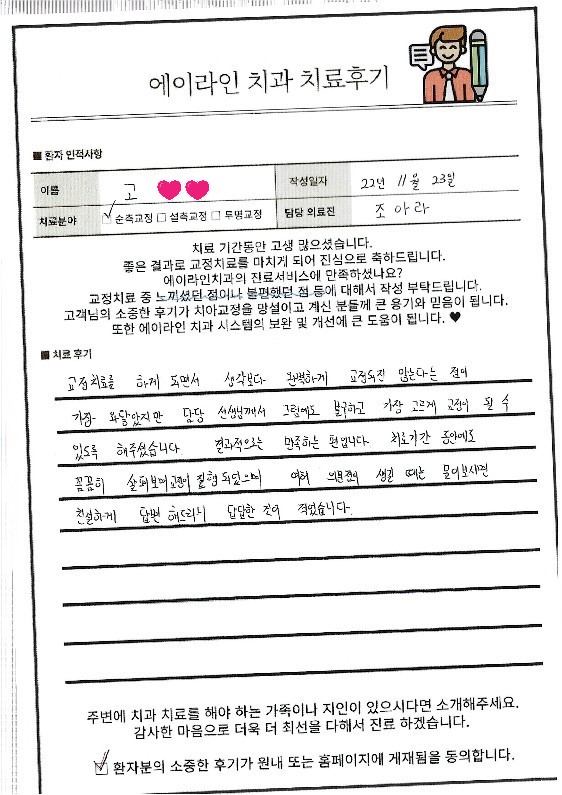 에이라인 치과 치료후기
■ 환자 인적사항
이름 고 작성일자 22년 11월 23일
치료분야 순측교정 설측교정 투명교정 담당 의료진 조아라
치료 기간동안 고생 많으셨습니다.
좋은 결과로 교정치료를 마치게 되어 진심으로 축하드립니다.
에이라인치과의 진료서비스에 만족하셨나요?
교정치료 중 느끼셨던 점이나 불편했던 점 등에 대해서 작성 부탁드립니다.
고객님의 소중한 후기가 치아교정을 망설이고 계신 분들께 큰 용기와 믿음이 됩니다.
또한 에이라인 치과 시스템의 보완 및 개선에 큰 도움이 됩니다. ♥
■ 치료 후기
교정치료를 하게 되면서 생각보다 완벽하게 교정되진 않는다는 점이
가장 와닿았지만 담당 선생님께서 그럼에도 불구하고 가장 고르게 교정이 될 수
있도록 해주셨습니다 결과적으로는 만족하는 편입니다. 치료기간 동안에도
꼼꼼히 살펴보며 교정이 진행되었으며 여러 의문점이 생길 때는 물어보시면
친절하게 답변 해드리니 답답한 것이 적었습니다.
주변에 치과 치료를 해야 하는 가족이나 지인이 있으시다면 소개해주세요.
감사한 마음으로 더욱 더 최선을 다해서 진료 하겠습니다.
환자분의 소중한 후기가 원내 또는 홈페이지에 게재됨을 동의합니다.